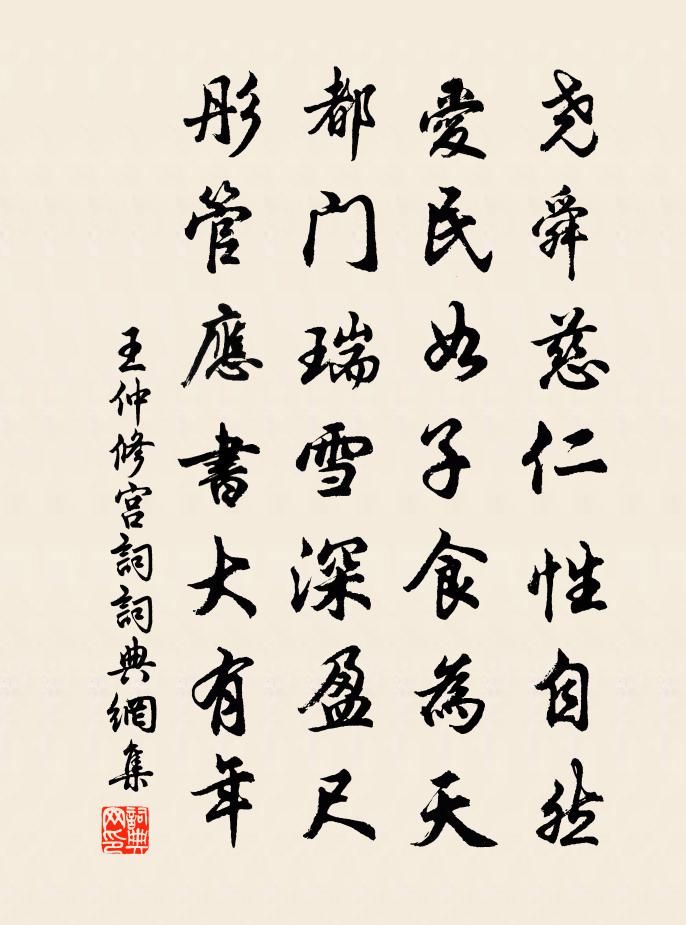 尧舜慈仁性自然
愛民如子食為天
都门瑞雪深盈尺
彤管應書大有年
王仲修宫詞詞典網集
詞典网印